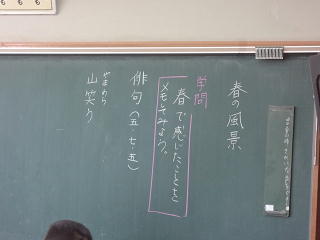 春の風景
学問
春で感じたことを
メモしてみよう。
俳句(五・七・五)
やまわら
山笑う